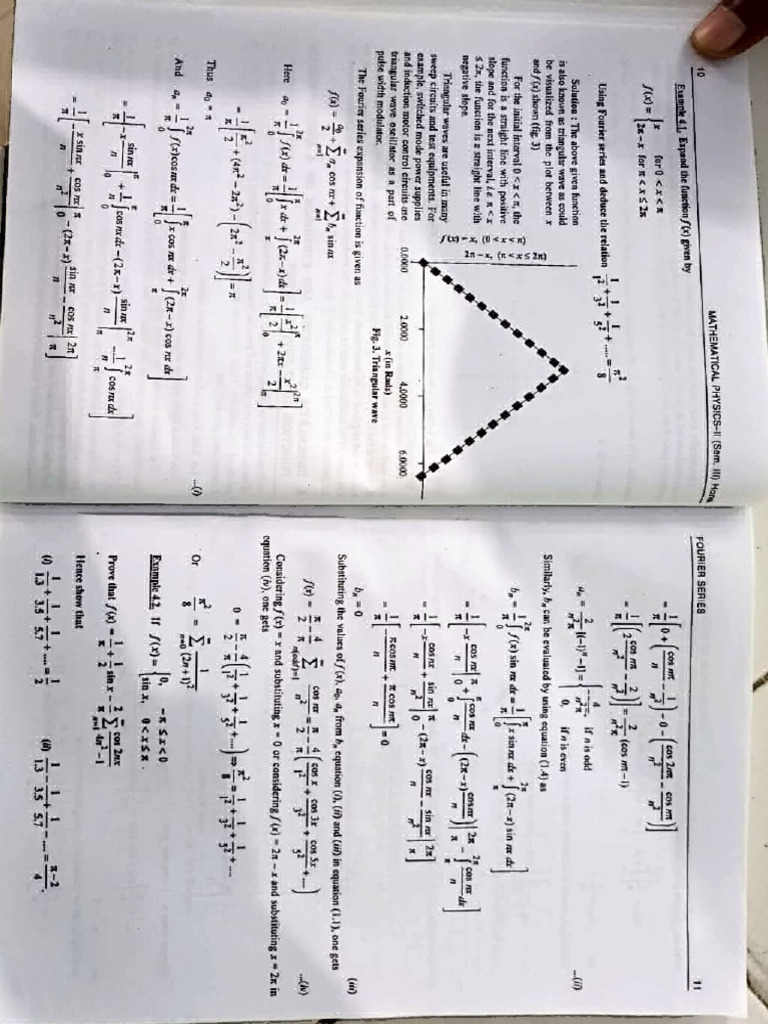 10 MATHEMATICAL PHYSICS–II (Sem. III) Hons
Example 4.1. Expand the function f(x) given by
f(x) = { x for 0 < x < π
2π – x for π < x ≤ 2π
Using Fourier series and deduce the relation 1/1² + 1/3² + 1/5² + ..... = π²/8
Solution : The above given function
is also known as triangular wave as could
be visualized from the plot between x
and f(x) shown (fig. 3)
For the initial interval 0 < x < π, the
function is a straight line with positive
slope and for the next interval, i.e π < x
≤ 2π, the function is a straight line with
negative slope.
Triangular waves are useful in many
sweep circuits and test equipments. For
example, switched mode power supplies
and induction motor control circuits use
triangular wave oscillator as a part of
pulse width modulator.
f(x) = x, (0 < x < π)
2π – x, (π < x ≤ 2π)
0.0000 2.0000 4.0000 6.0000
x (in Rads)
Fig. 3. Triangular wave
The Fourier series expansion of function is given as
f(x) = a₀/2 + Σ aₙ cos nx + Σ bₙ sin nx
Here a₀ = 1/π ∫₀^2π f(x) dx = 1/π [∫₀^π x dx + ∫π^2π (2π – x) dx] = 1/π [x²/2 |₀^π + 2πx – x²/2 |π^2π]
= 1/π [π²/2 + (4π² – 2π²) – (2π² – π²/2)] = π
Thus a₀ = π ...(i)
And aₙ = 1/π ∫₀^2π f(x) cos nx dx = 1/π [∫₀^π x cos nx dx + ∫π^2π (2π – x) cos nx dx]
FOURIER SERIES 11
= 1/π [0 + (cos nπ/n² – 1/n²) – 0 – (cos 2nπ/n² – cos nπ/n²)]
= 1/π [2 cos nπ/n² – 2/n²] = 2/n²π (cos nπ – 1)
aₙ = 2/n²π [(–1)ⁿ – 1] = { –4/n²π, if n is odd
0, if n is even ...(ii)
Similarly, bₙ can be evaluated by using equation (1.4) as
bₙ = 1/π ∫₀^2π f(x) sin nx dx = 1/π [∫₀^π x sin nx dx + ∫π^2π (2π – x) sin nx dx]
= 1/π [–π cos nπ/n + π cos nπ/n] = 0
bₙ = 0 (iii)
Substituting the values of f(x), a₀, aₙ from bₙ equation (i), (ii) and (iii) in equation (1.1), one gets
f(x) = π/2 – 4/π Σ n(odd)=1 cos nx/n² = π/2 – 4/π (cos x/1² + cos 3x/3² + cos 5x/5² + ...) ...(iv)
Considering f(x) = x and substituting x = 0 or considering f(x) = 2π – x and substituting x = 2π in
equation (iv), one gets
0 = π/2 – 4/π (1/1² + 1/3² + 1/5² + ...) ⇒ π²/8 = 1/1² + 1/3² + 1/5² + ...
Or π²/8 = Σ n=0 1/(2n + 1)²
Example 4.2. If f(x) = { 0, –π ≤ x < 0
sin x, 0 < x ≤ π .
Prove that f(x) = 1/π + 1/2 sin x – 2/π Σ n=1 cos 2nx/4n² – 1
Hence show that
(i) 1/1.3 + 1/3.5 + 1/5.7 + ... = 1/2 (ii) 1/1.3 – 1/3.5 + 1/5.7 – ... = π – 2/4 .